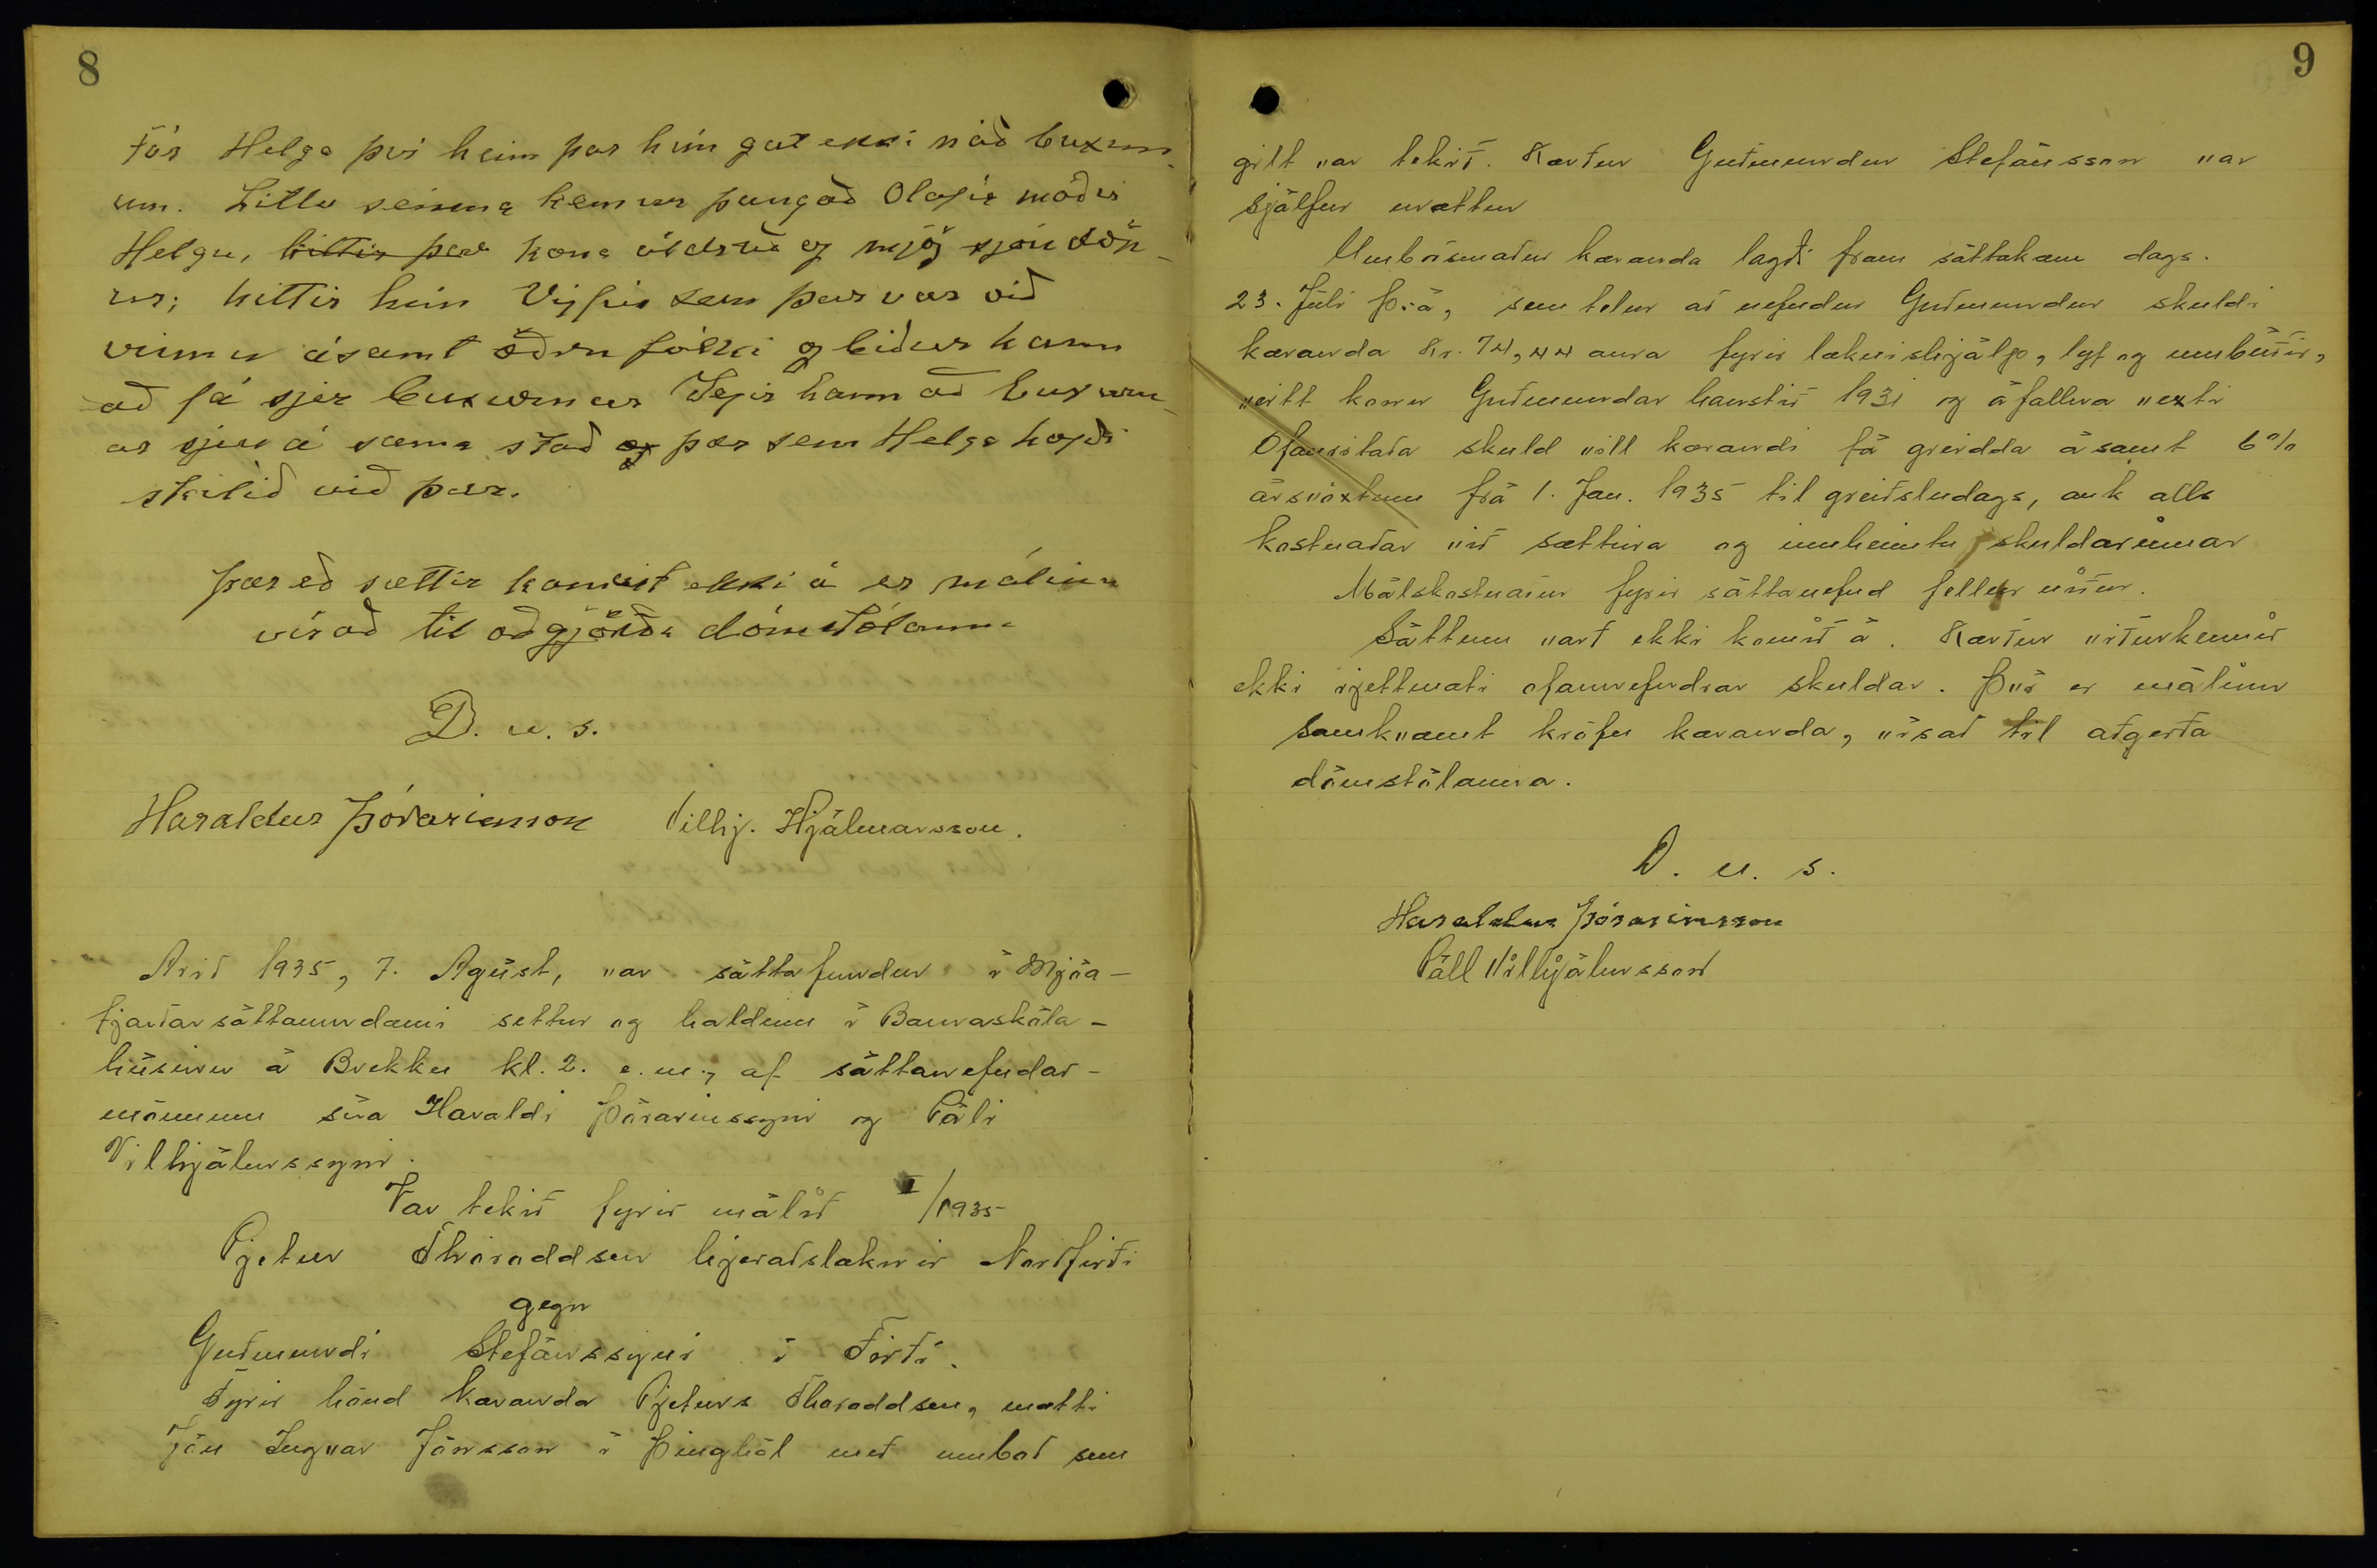 8
Fór Helga því heim þar hún gat ekki náð buxun-
um. Litlu seinna kemur þangað Olafía móðir
Helgu, hittir þar kona öldruð og mjög sjóndöp-
ur; hittir hún Vigfús sem þar var við
vinnu ásamt öðru fólki og biður hann
að fá sjer buxurnar Segir hann að buxurn-
ar sjeu á sama stað og þar sem Helga hafði
skilið við þær.
Þar eð sættir komust ekki á er málinu
vísað til aðgjörða dómstólanna
D. u. s.
Haraldur Þórarinsson Vilhj. Hjálmarsson.
Arið 1935, 7. Agúst, var sáttafundur í Mjóa-
fjarðarsáttaumdæmi settur og haldinn í Barnaskóla-
húsinu á Brekku kl. 2. e.m., af sáttanefndar-
mönnum séra Haraldi Þórarinssyni og Páli
Vilhjálmssyni.
Var tekið fyrir málið I/1935
Pjetur Thoroddsen hjeraðslæknir Norðfirði
gegn
Guðmundi Stefánssyni í Firði.
Fyrir hönd kæranda Pjeturs Thoroddsen, mætti
Jón Ingvar Jónsson í Þinghól með umboð sem
9
gilt var tekið. Kærður Guðmundur Stefánsson var
sjálfur mættur
Umboðsmaður kæranda lagði fram sáttakæru dags.
23. Júlí þ.á, sem telur að nefndur Guðmundur skuldi
kæranda Kr. 74,44 aura fyrir læknishjálp, lyf og umbúðir,
veitt konu Guðmundar haustið 1931 og áfallna vexti
Ofanritaða skuld vill kærandi fá greidda ásamt 6%
ársvöxtum frá 1. Jan. 1935 til greiðsludags, auk alls
kostnaðar við sættina og innheimtu skuldarinnar
Málskostnaður fyrir sáttanefnd fellur niður.
Sáttum varð ekki komið á. Kærður viðurkennir
ekki rjettmæti ofannefndrar skuldar. Því er málinu
samkvæmt kröfu kæranda, vísað til aðgerða
dómstólanna.
D. u. s.
Haraldur Þórarinsson
Páll Vilhjálmsson